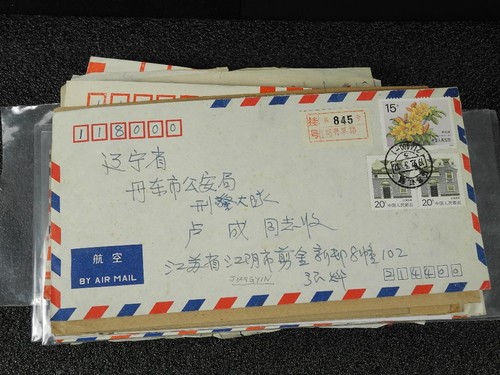 118000
挂号 845
15分
辽宁省
丹东市公安局
刑警大队
卢成 同志收
20分 中国人民邮政
20分 中国人民邮政
江苏省江阴市剪金新邨8幢102
JIANGYIN
214400
航空
BY AIR MAIL